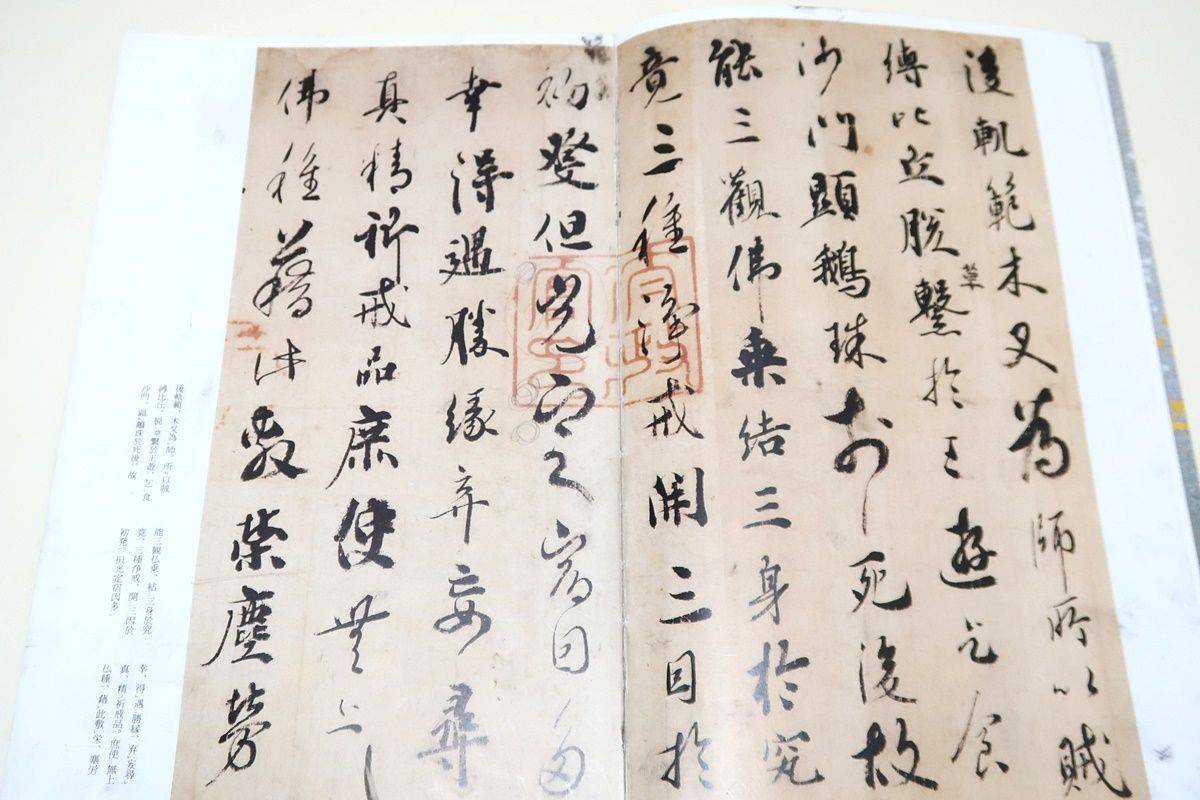 後軌範木叉為師所以賊
縛比丘脱草繋於王遊乞食
沙門顯鵝珠於死後故
能三觀佛乗結三身於究
竟三種浄戒開三因於
初發但光定宿因多
幸得遇勝縁弃妄尋
真精祈戒品庶使無上
佛種藉此敷榮塵勞
後軌範、木叉為師。所以賊
縛比丘、脱草繋於王遊、乞食
沙門、顕鵝珠於死後。故
能三観仏乗、結三身於究
竟、三種浄戒、開三因於
初発。但光定宿因多
幸、得遇勝縁、弃妄尋
真、精祈戒品。庶使無上
仏種、藉此敷栄、塵労